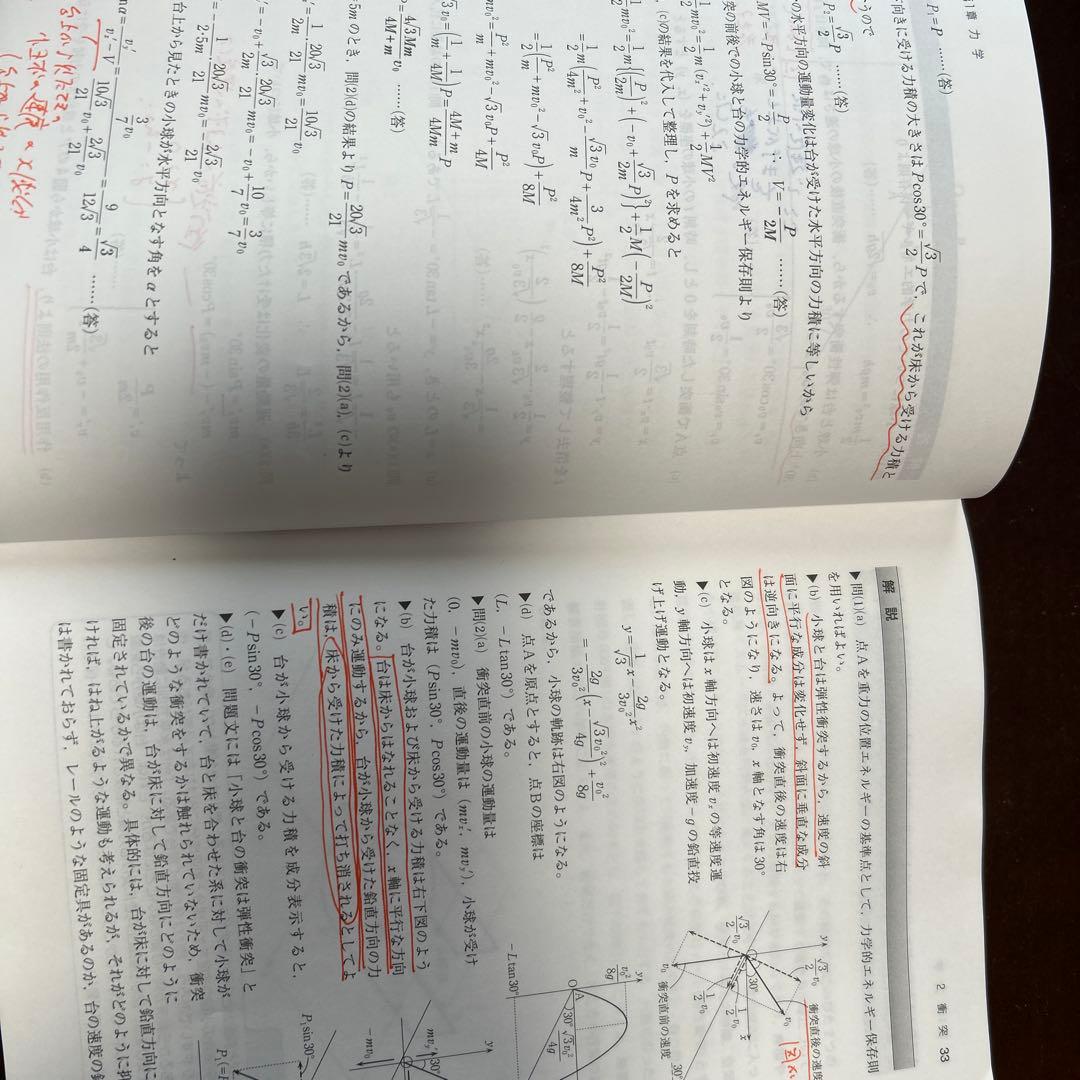 第1章 力学
P₁=P ……(答)
向きに受ける力積の大きさは Pcos30°=√3/2 P で，これが床から受ける力積と
うので
P₂=√3/2 P ……(答)
の水平方向の運動量変化は台が受けた水平方向の力積に等しいから
MV=-Psin30°=-P/2 ∴ V=-P/2M ……(答)
突の前後での小球と台の力学的エネルギー保存則より
1/2 mv₀²=1/2 m(vₓ'²+v_y'²)+1/2 MV²
，(c)の結果を代入して整理し，Pを求めると
1/2 mv₀²=1/2 m{(P/2m)²+(-v₀+√3/2m P)²}+1/2 M(-P/2M)²
=1/2 m(P²/4m²+v₀²-√3v₀/m P+3/4m² P²)+P²/8M
=1/2(P²/m+mv₀²-√3v₀P)+P²/8M
mv₀²=P²/m+mv₀²-√3v₀P+P²/4M
√3v₀=(1/m+1/4M)P=4M+m/4Mm P
P=4√3Mm/4M+m v₀ ……(答)
=5m のとき，問(2)(d)の結果より P=20√3/21 mv₀ であるから，問(2)(a)，(c)より
=1/2m・20√3/21 mv₀=10√3/21 v₀
=-v₀+√3/2m・20√3/21 mv₀=-v₀+10/7 v₀=3/7 v₀
-1/2・5m・20√3/21 mv₀=-2√3/21 v₀
台上から見たときの小球が水平方向となす角をαとすると
nα=v_y'/vₓ'-V=3/7 v₀/10√3/21 v₀+2√3/21 v₀=9/12√3=√3/4 ……(答)
2 衝突 33
解説
▶問(1)(a) 点Aを重力の位置エネルギーの基準点として，力学的エネルギー保存則
を用いればよい。
▶(b) 小球と台は弾性衝突するから，速度の斜
面に平行な成分は変化せず，斜面に垂直な成分
は逆向きになる。よって，衝突直後の速度は右
図のようになり，速さは v₀，x軸となす角は30°
となる。
▶(c) 小球はx軸方向へは初速度 vₓ の等速度運
動，y軸方向へは初速度 v_y，加速度 -g の鉛直投
げ上げ運動となる。
y=1/√3 x-2g/3v₀² x²
=-2g/3v₀²(x-√3v₀²/4g)²+v₀²/8g
であるから，小球の軌跡は右図のようになる。
▶(d) 点Aを原点とすると，点Bの座標は
(L，-Ltan30°) である。
▶問(2)(a) 衝突直前の小球の運動量は
(0，-mv₀)，直後の運動量は (mvₓ'，mv_y')，小球が受け
た力積は (Psin30°，Pcos30°) である。
▶(b) 台が小球および床から受ける力積は右下図のよう
になる。台は床からはなれることなく，x軸に平行な方向
にのみ運動するから，台が小球から受けた鉛直方向の力
積は，床から受けた力積によって打ち消されるとしてよ
い。
▶(c) 台が小球から受ける力積を成分表示すると，
(-Psin30°，-Pcos30°) である。
▶(d)・(e) 問題文には「小球と台の衝突は弾性衝突」と
だけ書かれていて，台と床を合わせた系に対して小球が
どのような衝突をするかは触れられていないため，衝突
後の台の運動は，台が床に対して鉛直方向にどのように
固定されているかで異なる。具体的には，台が床に対して鉛直方向に
ければ，はね上がるような運動も考えられるが，それがどのように抑
は書かれておらず，レールのような固定具があるのか，台の速度の鉛
y
√3/2 v₀
√3/2 v₀
30°
1/2 v₀
1/2 v₀
x
v₀
v₀
衝突直後の速度
衝突直前の速度
30°
y
v₀²/8g
O
A
30°
√3v₀²/4g
-Ltan30°
y
mv_y'
-mv₀
30°
P₁sin30°